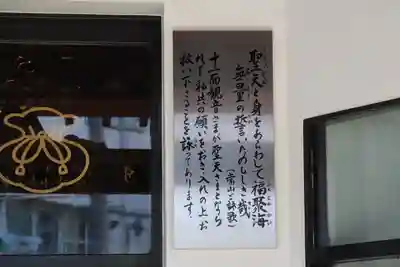 聖天と身をあらわして福聚海
無量の誓いたのもしき哉
(当山ご詠歌)
十一面観音さまが聖天さまとなら
れ私共の願いをお き入れの上、お
救い下さることを詠ってあります。